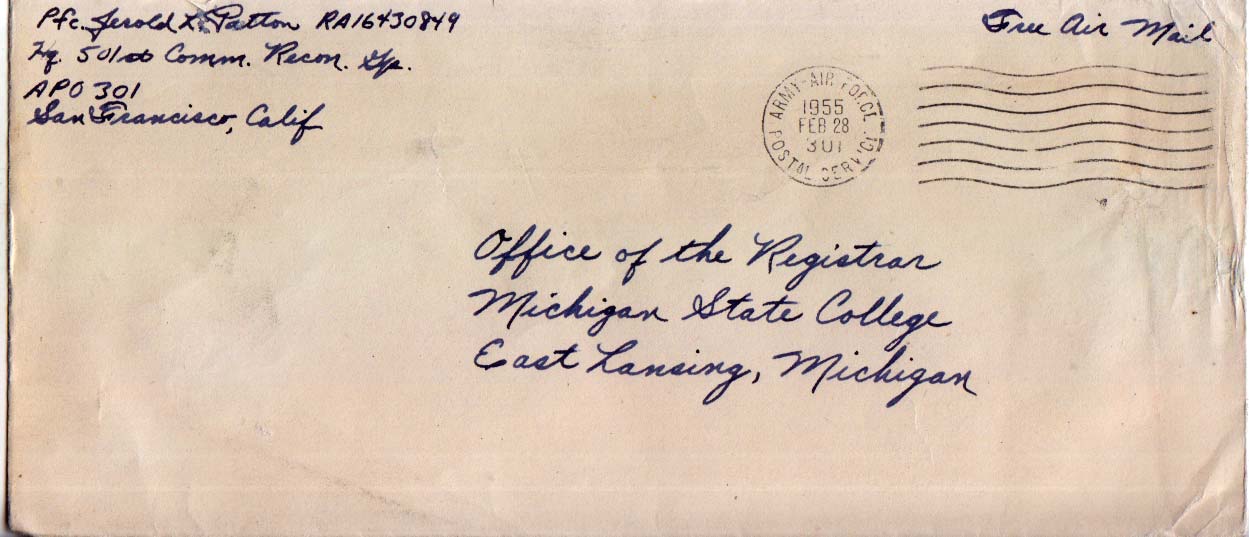 Pfc. Jerold L. Patton RA16430849
Hq. 501st Comm. Recon. Gp.
APO 301
San Francisco, Calif
Free Air Mail
ARMY-AIR FORCE
1955
FEB 28
301
POSTAL SERVICE
Office of the Registrar
Michigan State College
East Lansing, Michigan